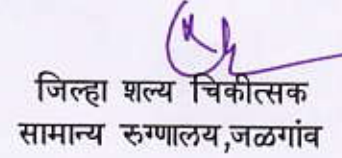 जिल्हा शल्य चिकीत्सक
सामान्य रुग्णालय,जळगांव